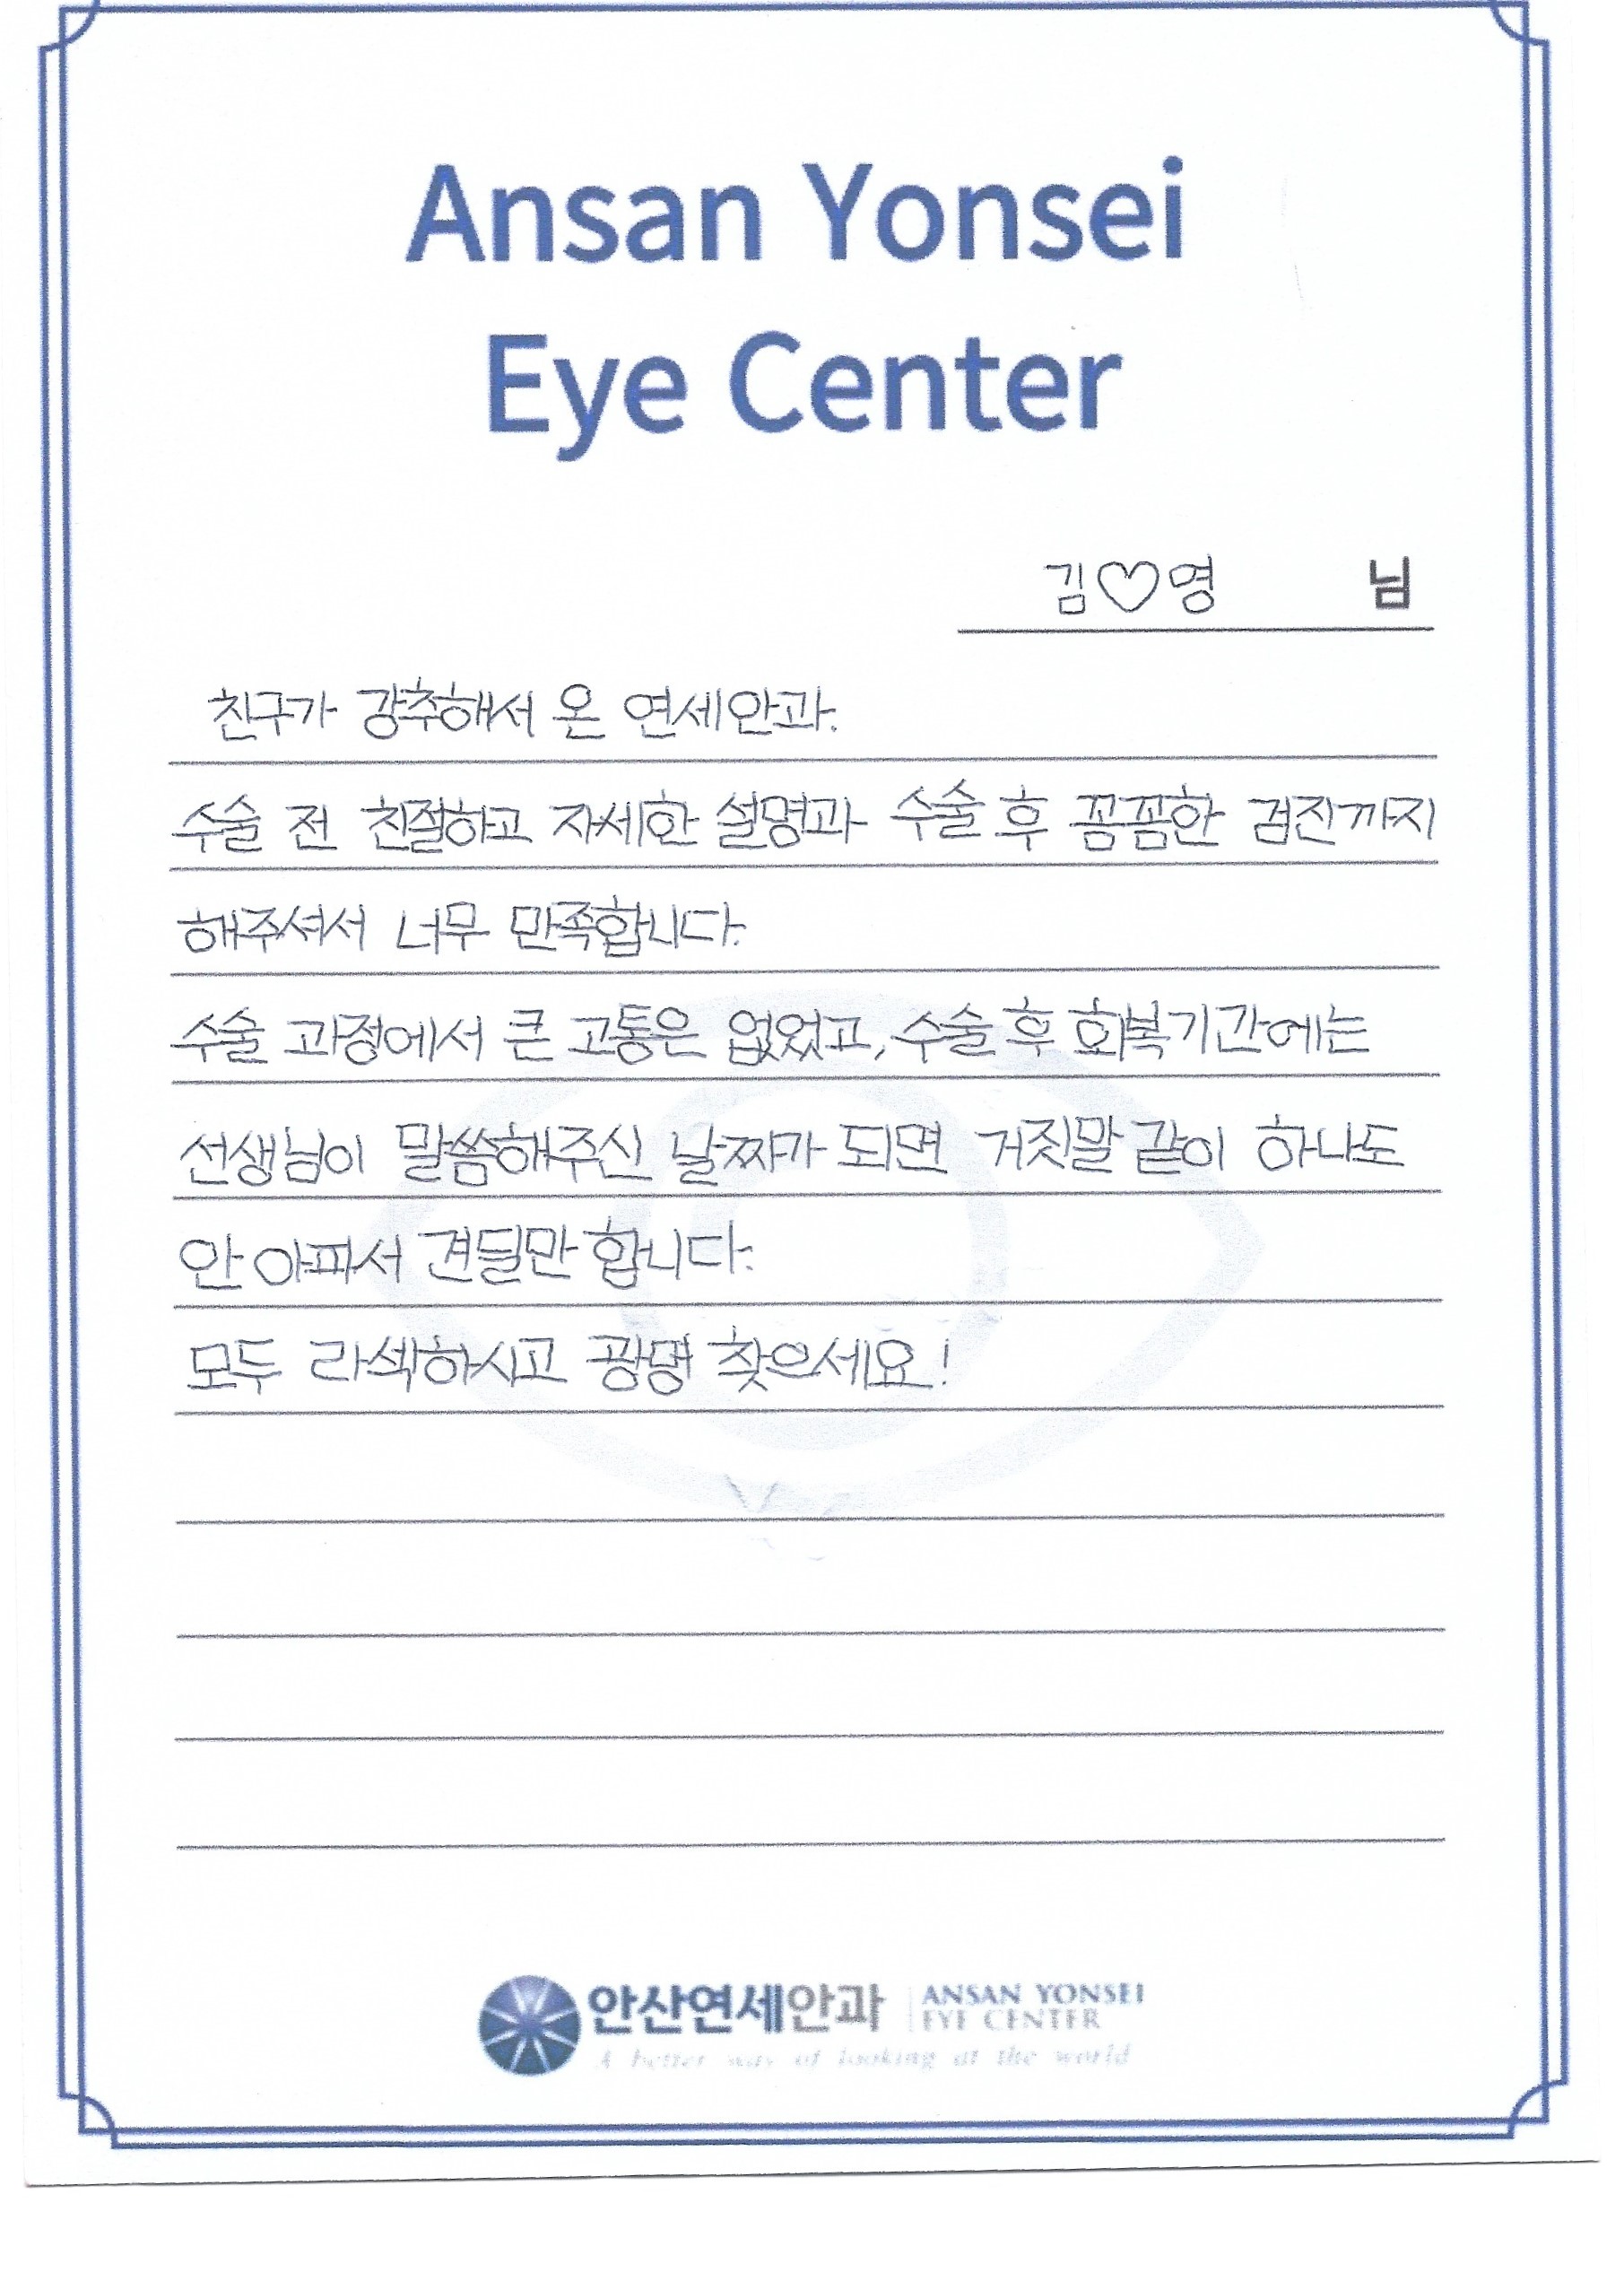 Ansan Yonsei
Eye Center
김♡영 님
친구가 강추해서 온 연세안과.
수술 전 친절하고 자세한 설명과 수술 후 꼼꼼한 검진까지
해주셔서 너무 만족합니다.
수술 과정에서 큰 고통은 없었고, 수술 후 회복기간에는
선생님이 말씀해주신 날짜가 되면 거짓말 같이 하나도
안 아파서 견딜만 합니다.
모두 라섹하시고 광명 찾으세요!
안산연세안과 ANSAN YONSEI
EYE CENTER
A better way of looking at the world